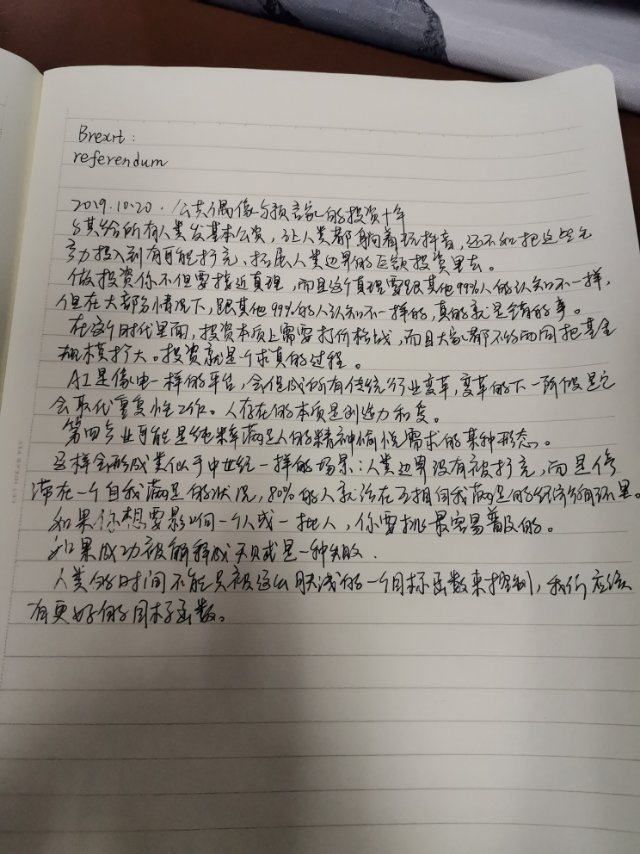 Brexit:
referendum
2019.10.20. 公共偶像与预言家的投资十年
与其给所有人类发基本公资,让人类都躺着玩抖音,还不如把这些
努力投入到有可能扩充、拓展人类边界的巨额投资里去。
做投资你不但要接近真理,而且这个真理要跟其他99%人的认知不一样,
但在大部分情况下,跟其他99%的人认知不一样的,真的就是错的事。
在这个时代里面,投资本质上需要打价格战,而且大家都不约而同把基金
规模打大。投资就是一个求真的过程。
AI是像电一样的平台,会促成所有传统行业变革,变革的下一阶段是它
会取代重复性工作。人存在的本质是创造力和爱。
第四产业可能是纯粹满足人的精神愉悦需求的某种形态。
这样会形成类似于中世纪一样的场景:人类边界没有被扩充,而是停
滞在一个自我满足的状况,80%的人就活在互相自我满足的经济循环里。
如果你想要影响一个人或一批人,你要挑最容易普及的。
如果成功被解释成天赋是一种失败.
人类的时间不能只被这么肤浅的一个目标函数来控制,我们应该
有更好的目标函数。